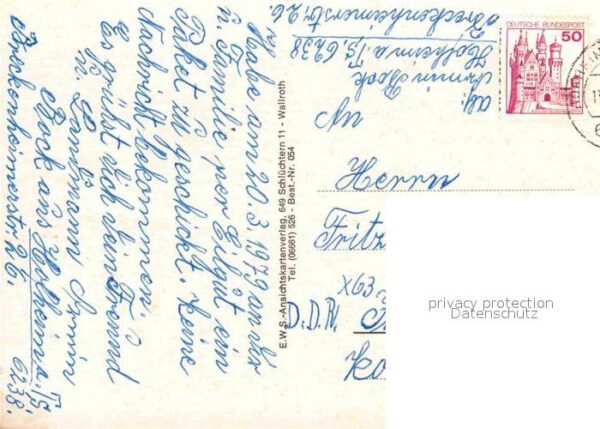 Habe am 20.3.1979 an der
u. Familie per Eilgut ein
Paket zu geschickt. keine
Nachricht bekommen.
Es grüßt dich dein Freund
u. Landsmann Armin
Bock aus Hofheim a. Ts.
6238.
Breckenheimerstr 26.
E.W.S.-Ansichtskartenverlag, 649 Schlüchtern 11 - Wallroth
Tel. (06661) 526 - Best.-Nr. 054
ab:
Armin Bock
Hofheim a. Ts. 6238
Breckenheimerstr 26.
DEUTSCHE BUNDESPOST
50
An
Herrn
Fritz
X63
D.D.R.
privacy protection
Datenschutz